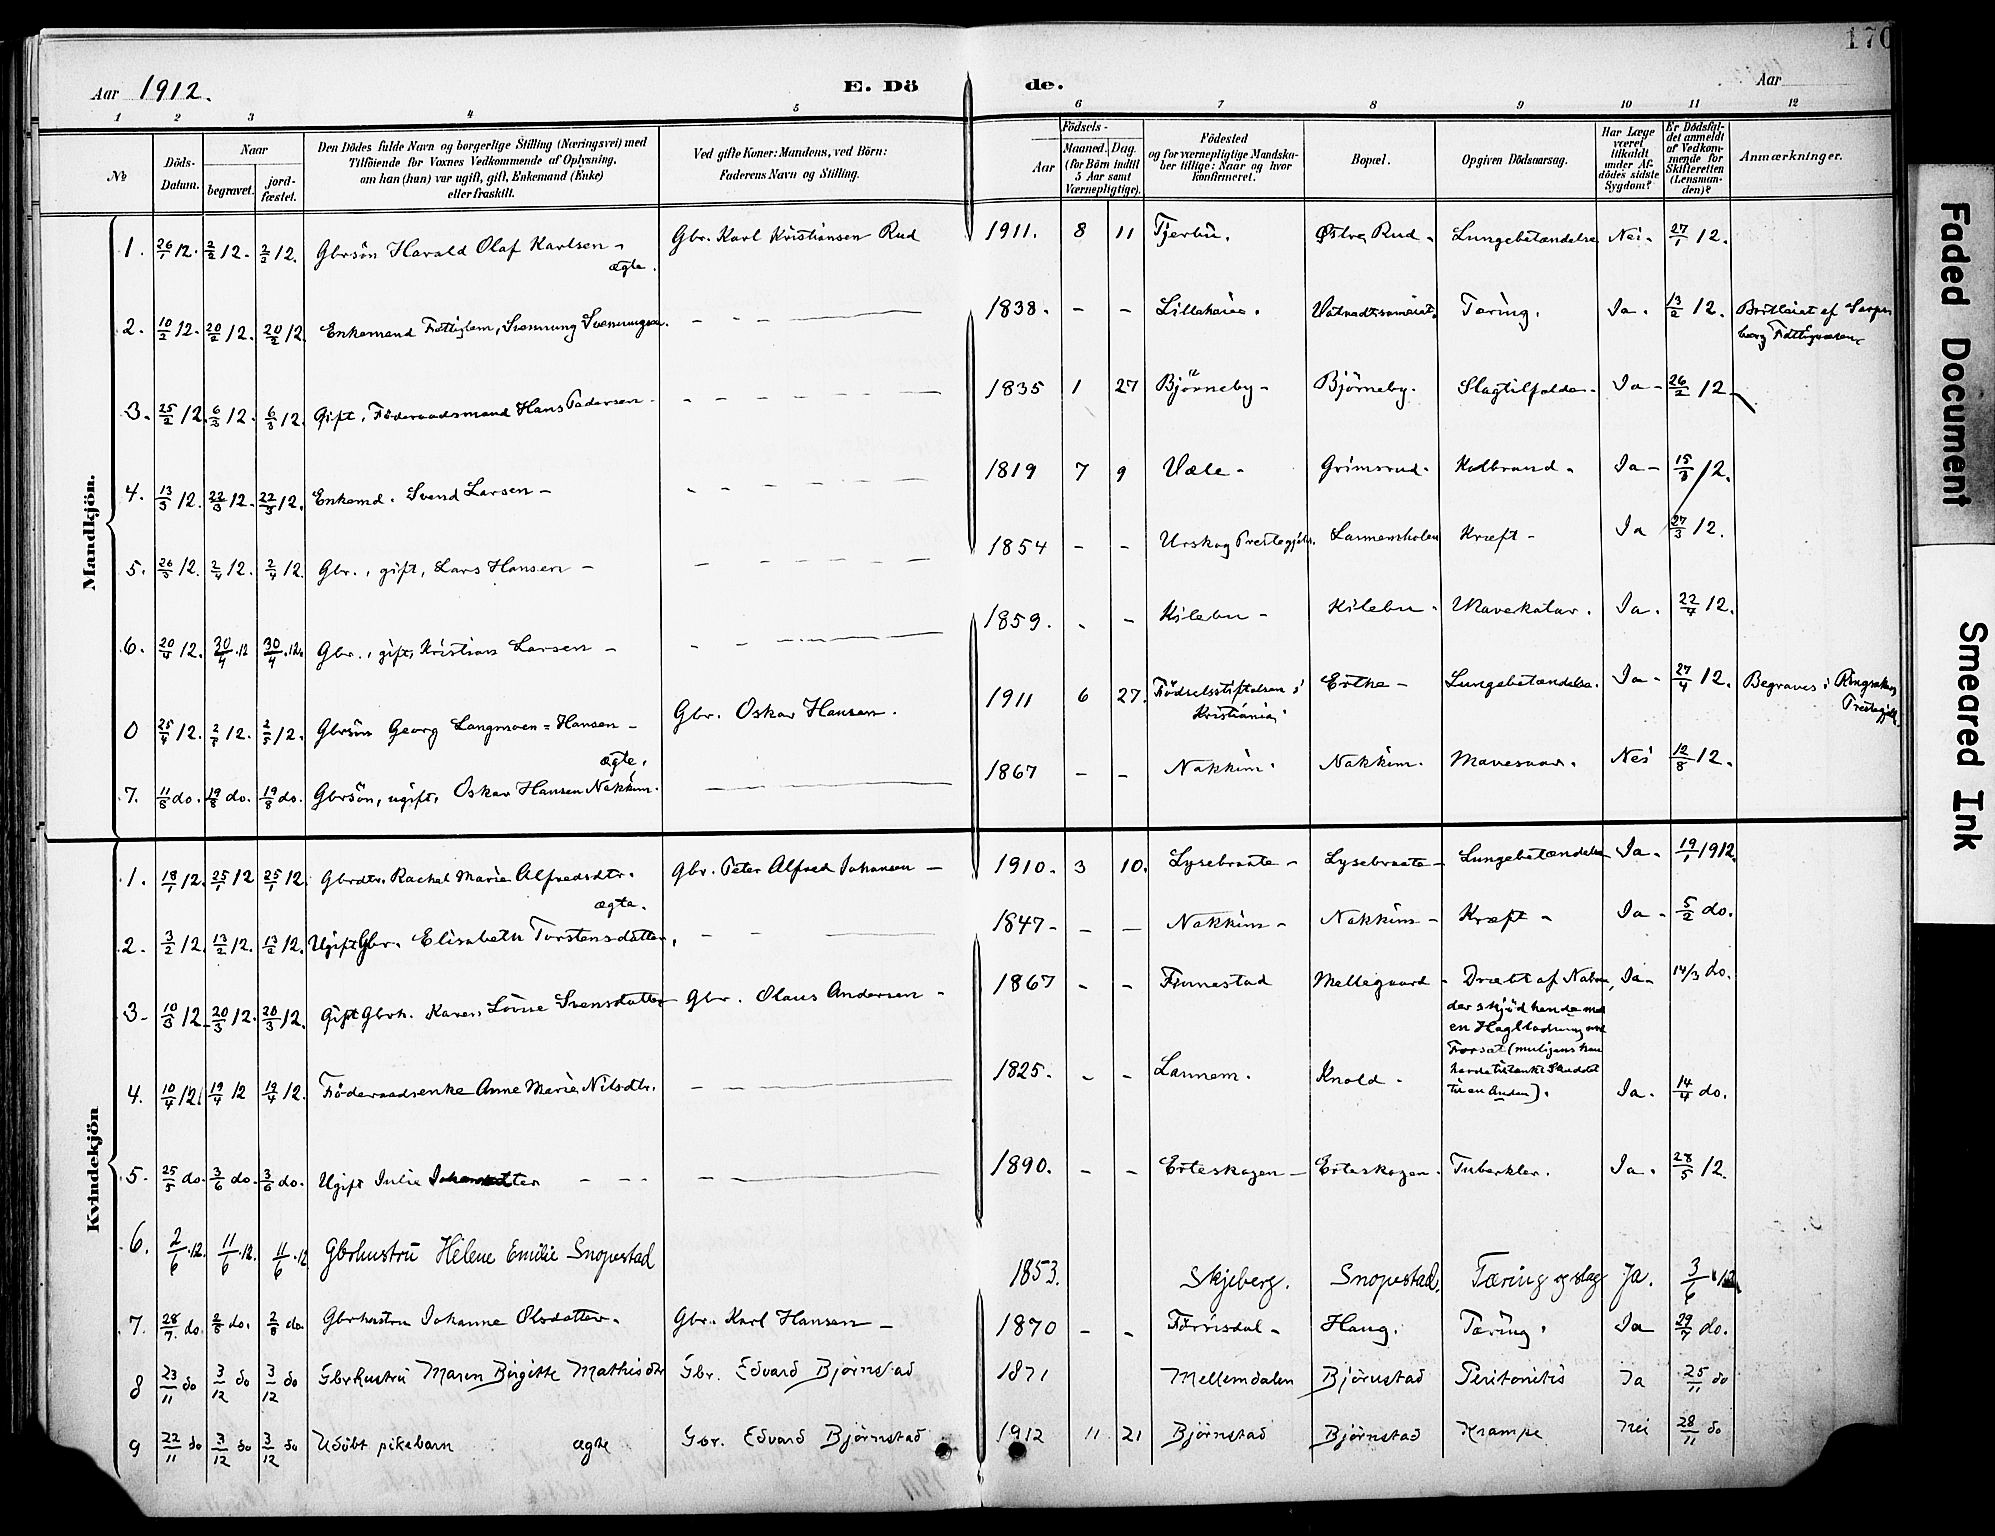 170
Aar 1912.
E. Döde.
Aar
1 2 3 4 5 6 7 8 9 10 11 12
No
Döds-Datum.
Naar
begravet.
jord-fæstet.
Den Dödes fulde Navn og borgerlige Stilling (Næringsvei) med
Tilföiende for Voxnes Vedkommende af Oplysning,
om han (hun) var ugift, gift, Enkemand (Enke)
eller fraskilt.
Ved gifte Koner: Mandens, ved Börn:
Faderens Navn og Stilling.
Födsels-
Aar
Maaned. Dag.
(for Börn indtil
5 Aar samt
Værnepligtige).
Födested
og for værnepligtige Mandska-
ber tillige: Naar og hvor
konfirmeret.
Bopæl.
Opgiven Dödsaarsag.
Har Læge
været
tilkaldt
under Af-
dödes sidste
Sygdom?
Er Dödsfal-
det anmeldt
af Vedkom-
mende for
Skifteretten
(Lensman-
den)?
Anmærkninger.
Mandkjön.
1. 26/1 12. 2/2 12. 2/2 12. Gbrsön Harald Olaf Karlsen - ægte. Gbr. Karl Kristiansen Rud 1911. 8 11 Tjerbu. Østre Rud - Lungebetændelse Nei - 27/1 12.
2. 10/2 12. 20/2 12. 20/2 12. Enkemand Fattiglem, Svennung Svenningsen. - - - 1838. - - Tæring. Ja. 13/2 12. af Sarps
borg Fattigvæsen
3. 25/2 12. 6/3 12. 6/3 12. Gift, Föderaadsmand Hans Pedersen - - - 1835 1 27 Björneby - Björneby. Slagtilfælde - Ja - 26/2 12
4. 13/3 12. 22/3 12. 22/3 12. Enkemd. Svend Larsen - - - 1819 7 9 Væle - Grimsrud - Kolbrand - Ja - 15/3 12.
5. 26/3 12. 2/4 12. 2/4 12. Gbr., gift, Lars Hansen - - - 1854 - - Urskog Prestegjeld. Lannemholen Kræft - Ja 27/3 12.
6. 20/4 12. 30/4 12 30/4 12. Gbr., gift, Kristian Larsen - - - 1859. - - Kilebu - Kilebu. Mavekatar. Ja. 22/4 12.
0 25/4 12. 2/5 12. 2/5 12. Gbrsön Georg Langmoen=Hansen - ægte. Gbr. Oskar Hansen. 1911 6 27. Födselsstiftelsen i
Kristiania. Erthe - Lungebetændelse. Ja - 27/4 12. Begraves i Ringsaker
Prestegjeld
7. 11/8 do. 19/8 do. 19/8 do. Gbrsön, ugift, Oskar Hansen Nakkim. 1867 - - Nakkim. Nakkim. Mavesaar. Nei 12/8 12.
Kvindekjön
1. 18/1 12. 25/1 12 25/1 12. Gbrdtr. Rachel Marie Alfredsdtr. ægte. Gbr. Peter Alfred Johansen - 1910. 3 10. Lysebraate - Lysebraate - Lungebetændelse Ja. 19/1 1912.
2. 3/2 12. 13/2 12. 13/2 12. Ugift Gbr. Elisabeth Torstensdatter, - - 1847 - - - Nakkim - Nakkim - Kræft - Ja - 5/2 do.
3 - 10/3 12 20/3 12. 20/3 12. Gift Gbrh. Karen Lovise Svensdatter Gbr. Olaus Andersen - 1867 - - Funnestad Mellegaard - Dræbt af Nabo, Ja - 14/3 do.
der skjöd hende med
en Hagladning med
Forsæt (muligens han
havde tiltænkt Skuddet
til en Anden).
4. 10/4 12. 19/4 12 19/4 12. Föderaadsenke Anne Marie Nilsdtr. - - 1825. - - Lannem. Knold. Ja. 14/4 do.
5. 25/5 do. 3/6 do. 3/6 do. Ugift Julie - - - 1890. - - Erteskogen - Erteskogen. Tuberkler. Ja. 28/5 12.
6. 2/6 12. 11/6 12. 11/6 12 Gbrhustru Helene Emilie Snopestad 1853. Skjeberg. Snopestad. Tæring og slag Ja. 3/6 12
7. 28/7 do. 2/8 do. 2/8 do Gbrhustru Johanne Olsdatter. Gbr. Karl Hansen - 1870 - - Förrisdal - Haug. Tæring. Ja 29/7 do.
8 23/11 do 3/12 do 3/12 do Gbrhustru Maren Birgitte Mathisdtr Gbr. Edvard Bjørnstad 1871 Mellemdalen Bjørnstad Peritonitis Ja 25/11 do
9 22/11 do 3/12 do 3/12 do Udöbt pikebarn ægte Gbr. Edvard Bjørnstad 1912 11 21 Bjørnstad Bjørnstad Krampe Nei 28/11 do
Faded Document
Smeared Ink